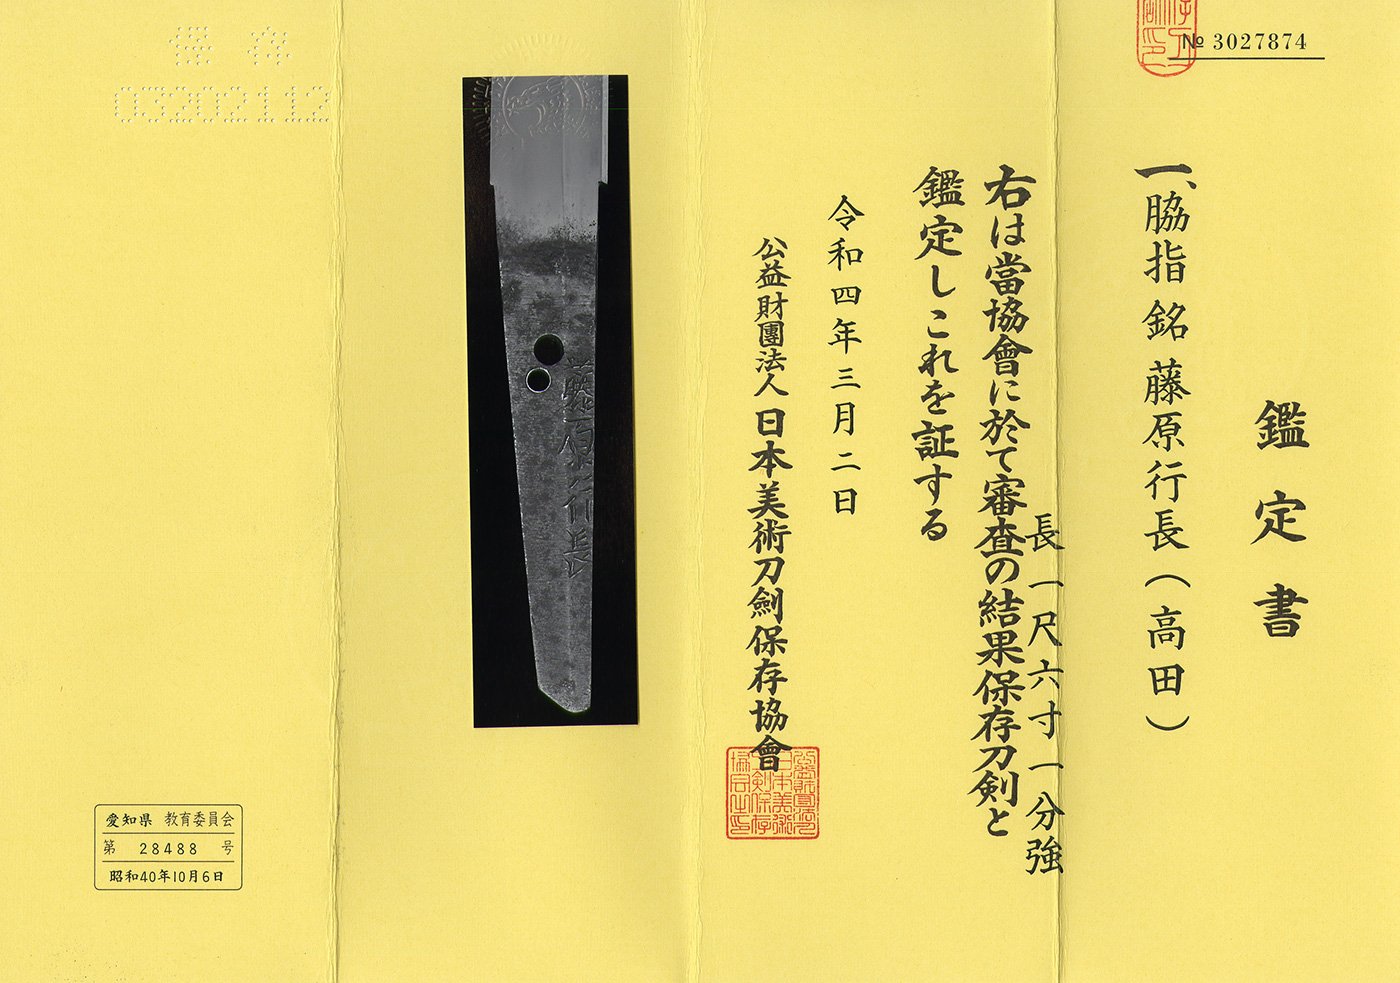 № 3027874
鑑定書
一、脇指 銘 藤原行長(高田)
長 一尺六寸一分強
右は當協會に於て審査の結果保存刀剣と
鑑定しこれを証する
令和四年三月二日
公益財團法人 日本美術刀劍保存協會
藤原行長
保存
03202112
愛知県 教育委員会
第 28488 号
昭和40年10月6日